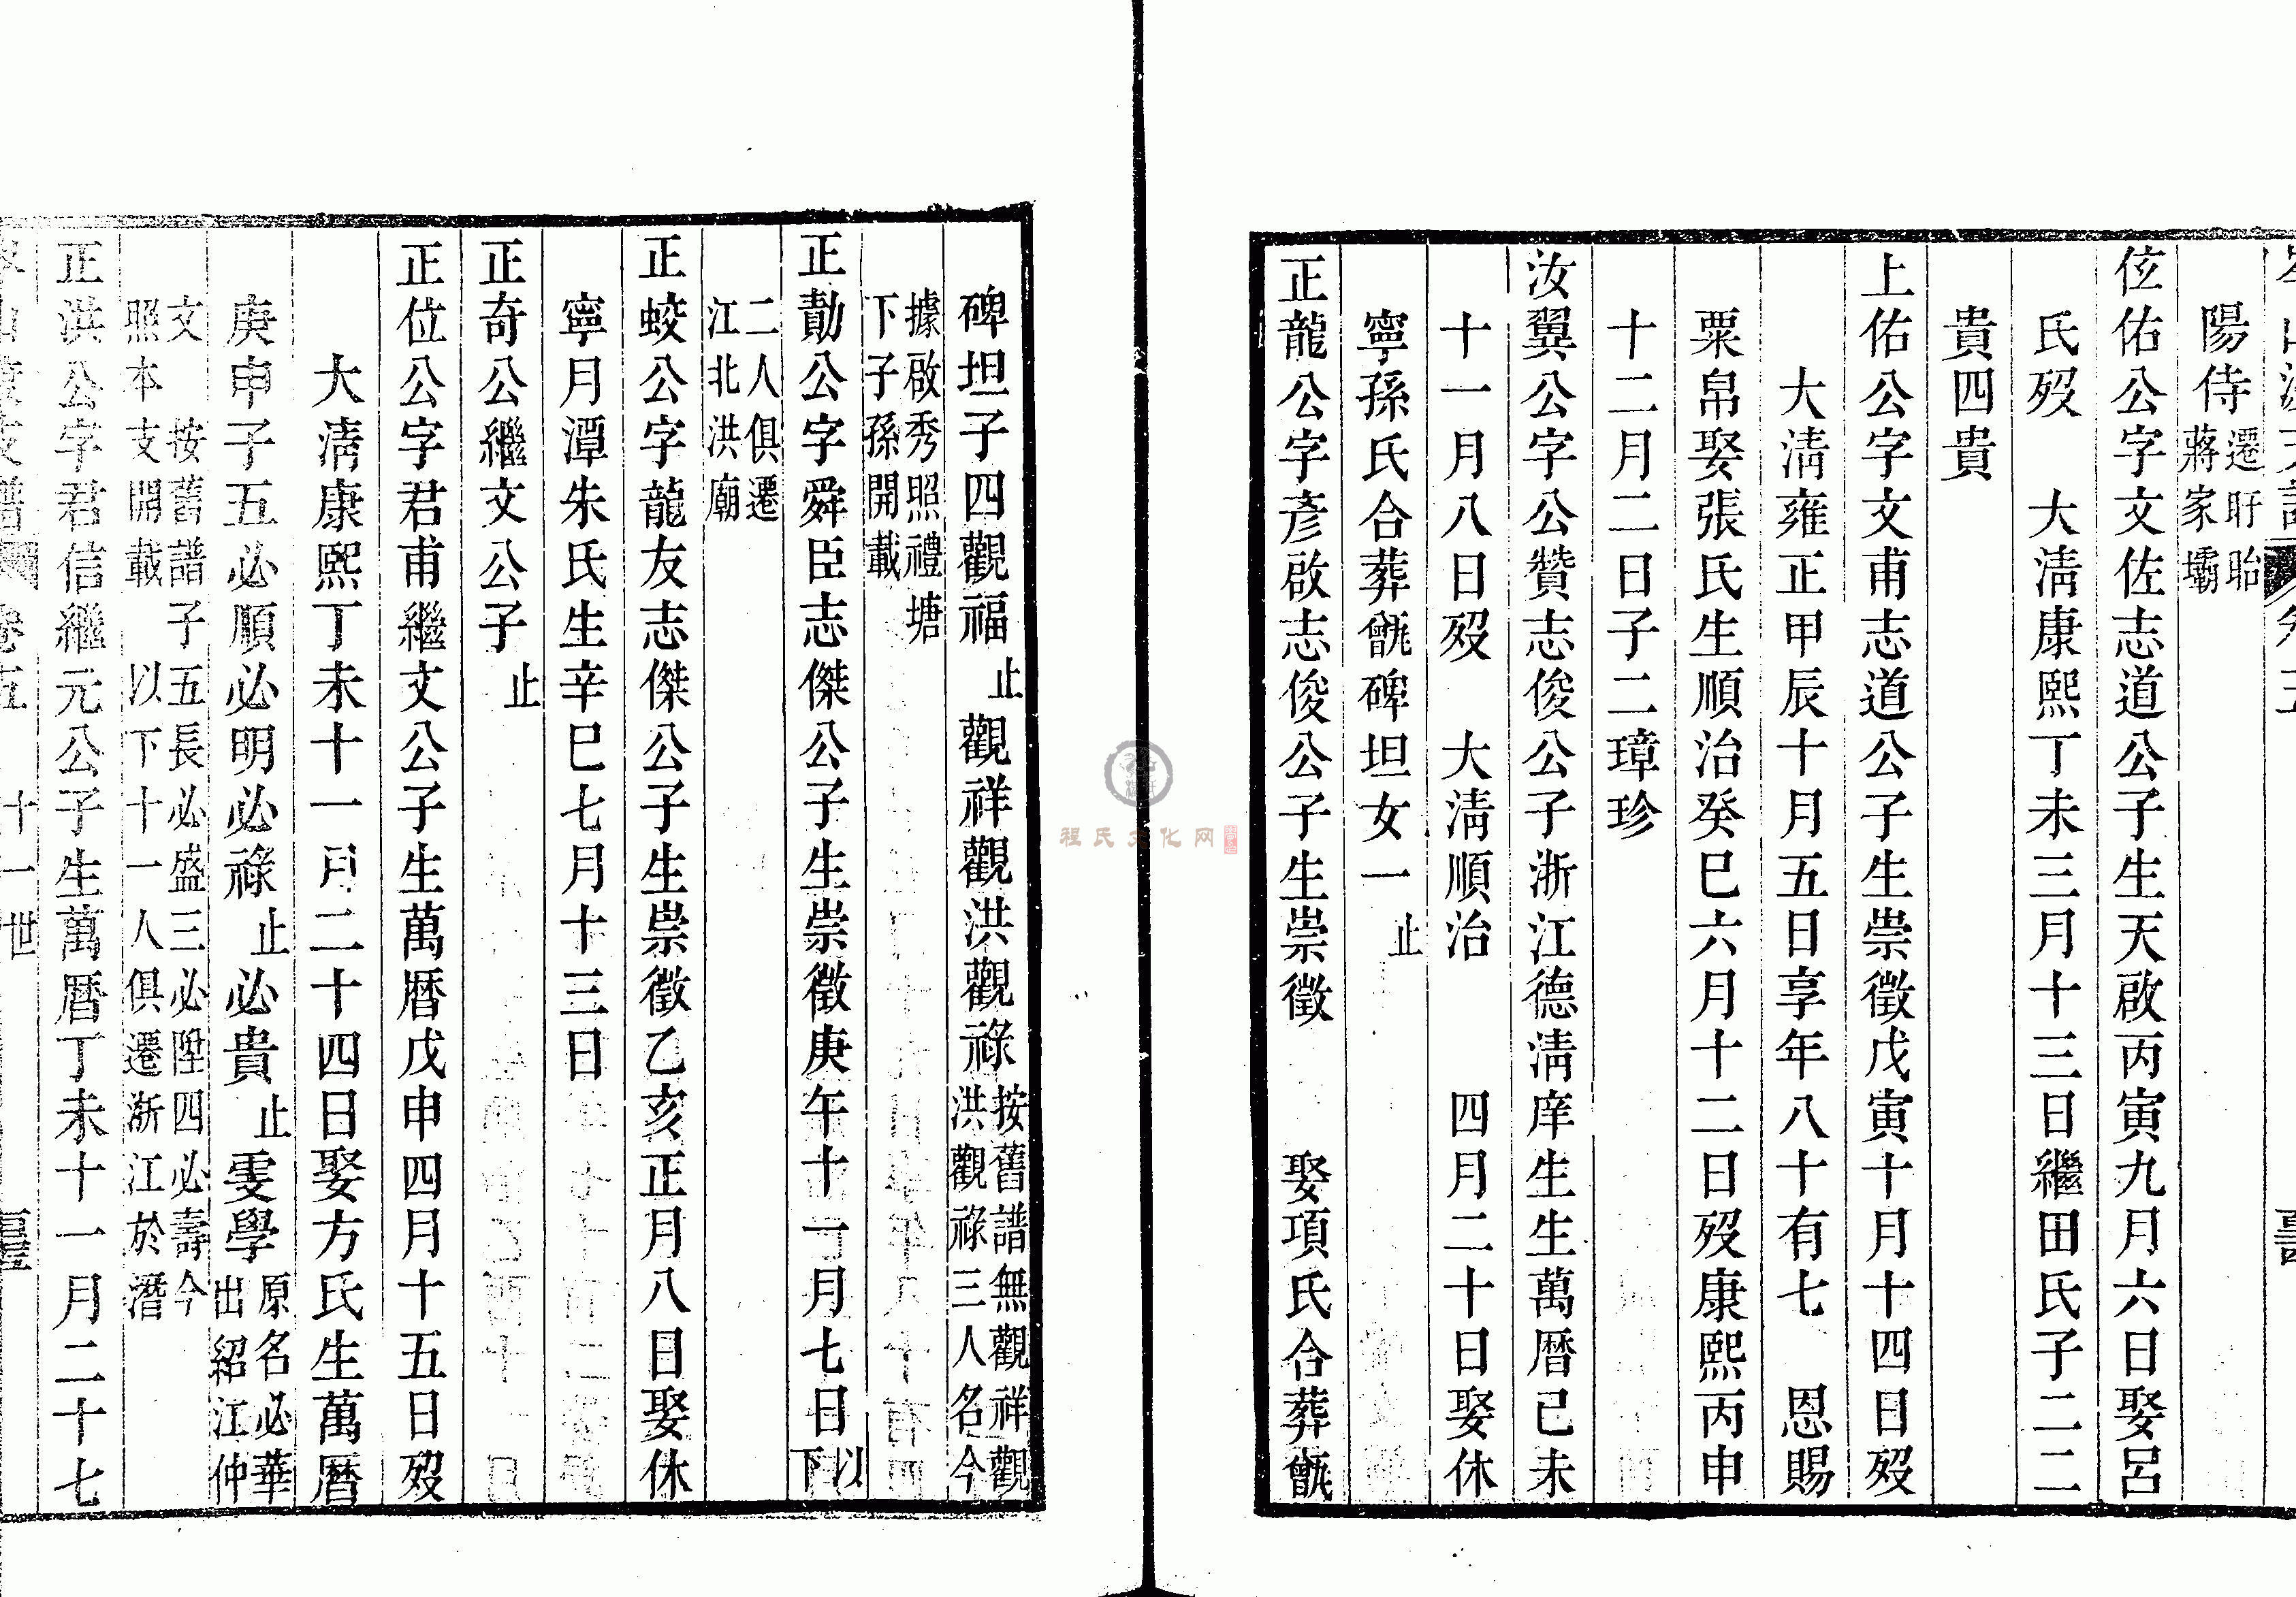 陽侍遷盱眙蔣家壩
伭佑公字文佐志道公子生天啟丙寅九月六日娶呂
氏歿 大淸康熙丁未三月十三日繼田氏子二二
貴四貴
上佑公字文甫志道公子生崇徵戊寅十月十四日歿
大淸雍正甲辰十月五日享年八十有七 恩賜
粟帛娶張氏生順治癸巳六月十二日歿康熙丙申
十二月二日子二璋珍
汝翼公字公贊志俊公子浙江德淸庠生生萬曆己未
十一月八日歿 大淸順治 四月二十日娶休
寧孫氏合葬甑碑坦女一止
正龍公字彥啟志俊公子生崇徵 娶項氏合葬甑
碑坦子四觀福止觀祥觀洪觀祿按舊譜無觀祥觀洪觀祿三人名今
據啟秀照禮塘下子孫開載
正勣公字舜臣志傑公子生崇徵庚午十一月七日以下
二人俱遷江北洪廟
正蛟公字龍友志傑公子生崇徵乙亥正月八日娶休
寧月潭朱氏生辛巳七月十三日
正奇公繼文公子止
正位公字君甫繼文公子生萬曆戊申四月十五日歿
大淸康熙丁未十一月二十四日娶方氏生萬曆
庚申子五必順必明必祿止必貴止雯學原名必華出紹江仲
文 按舊譜子五長必盛三必陞四必壽今照本支開載 以下十一人俱遷浙江於潛
正洪公字君信繼元公子生萬曆丁未十一月二十七
卷五 十一世
程氏文化网